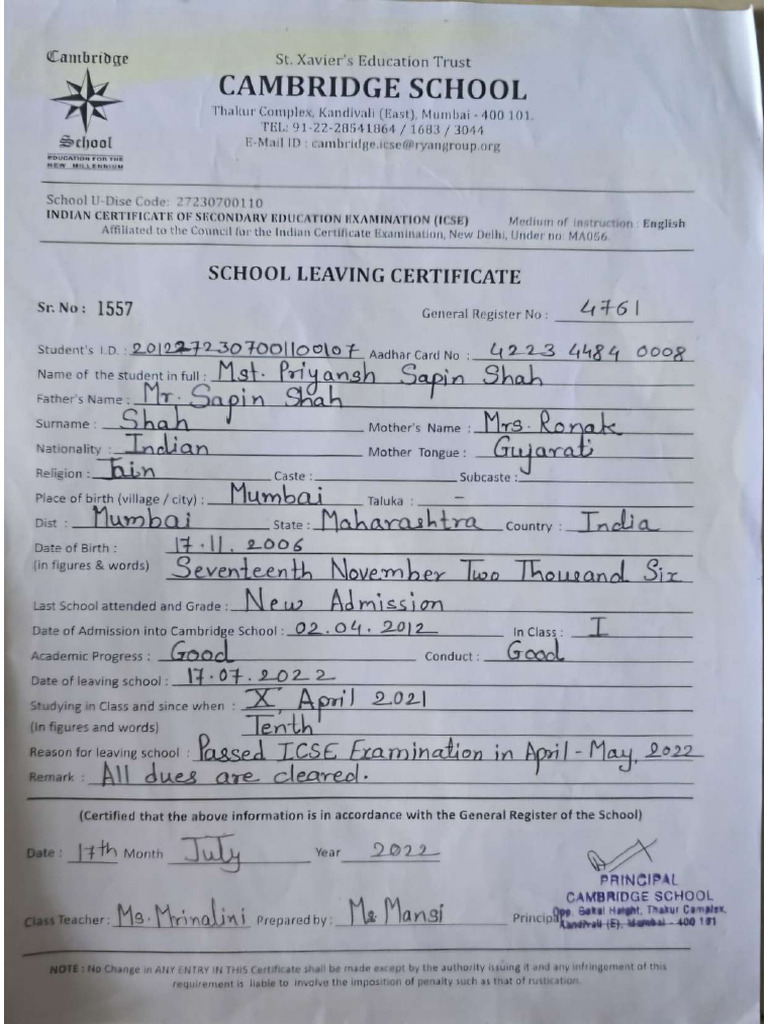 Cambridge
School
EDUCATION FOR THE
NEW MILLENNIUM
St. Xavier's Education Trust
CAMBRIDGE SCHOOL
Thakur Complex, Kandivali (East), Mumbai - 400 101.
TEL: 91-22-28541864 / 1683 / 3044
E-Mail ID : cambridge.icse@ryangroup.org
School U-Dise Code: 27230700110
INDIAN CERTIFICATE OF SECONDARY EDUCATION EXAMINATION (ICSE) Medium of instruction : English
Affiliated to the Council for the Indian Certificate Examination, New Delhi, Under no: MA056.
SCHOOL LEAVING CERTIFICATE
Sr. No : 1557 General Register No : 4761
Student's I.D. : 2012272307001100107 Aadhar Card No : 4223 4484 0008
Name of the student in full : Mst. Priyansh Sapin Shah
Father's Name : Mr. Sapin Shah
Surname : Shah Mother's Name : Mrs. Ronak
Nationality : Indian Mother Tongue : Gujarati
Religion : Jain Caste : Subcaste :
Place of birth (village / city) : Mumbai Taluka : –
Dist : Mumbai State : Maharashtra Country : India
Date of Birth : 17.11.2006
(in figures & words) Seventeenth November Two Thousand Six
Last School attended and Grade : New Admission
Date of Admission into Cambridge School : 02.04.2012 In Class : I
Academic Progress : Good Conduct : Good
Date of leaving school : 17.07.2022
Studying in Class and since when : X, April 2021
(in figures and words) Tenth
Reason for leaving school : Passed ICSE Examination in April - May, 2022
Remark : All dues are cleared.
(Certified that the above information is in accordance with the General Register of the School)
Date : 17th Month July Year 2022
PRINCIPAL
CAMBRIDGE SCHOOL
Opp. Gokul Height, Thakur Complex,
Kandivali (E), Mumbai - 400 101
Class Teacher : Ms. Mrinalini Prepared by : Ms Mansi Principal
NOTE : No Change in ANY ENTRY IN THIS Certificate shall be made except by the authority issuing it and any infringement of this
requirement is liable to involve the imposition of penalty such as that of rustication.